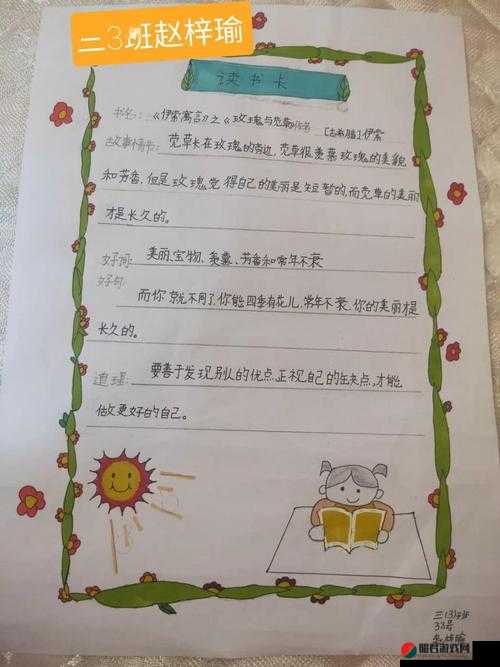 二3班赵梓瑜
读书卡
书名:《伊索寓言》之《玫瑰与苋草》作者 [古希腊]伊索
故事情节: 苋草长在玫瑰的旁边,苋草很羡慕玫瑰的美貌
和芳香,但是玫瑰觉得自己的美丽是短暂的,而苋草的美丽
才是长久的。
好词: 美丽、宝物、羡慕、芳香和常年不衰
好句:
而你就不同了,你能四季有花儿,常年不衰,你的美丽才是
长久的。
道理: 要善于发现别人的优点,正视自己的缺点,才能
做更好的自己。
三(3)班
33号
梓瑜
嗨谷游戏网